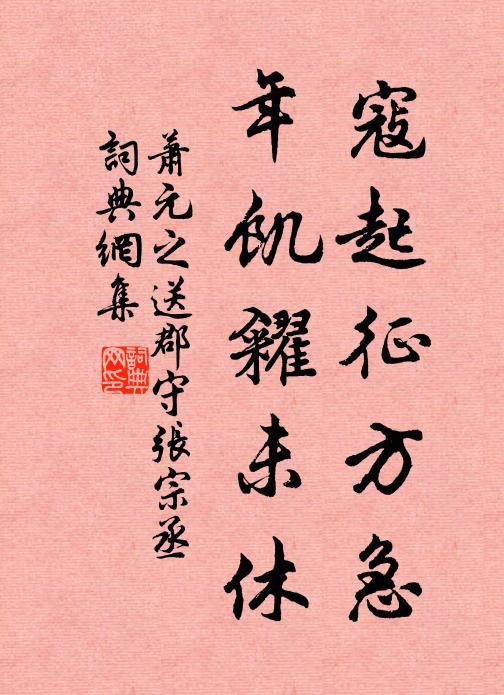 寇起征方急
年飢糴未休
蕭元之送郡守張宗丞
詞典網集
詞典網印